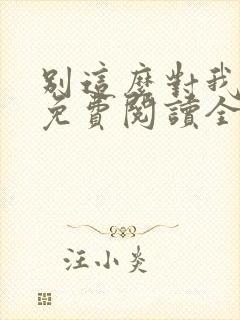 別這麼對我
免費閱讀全
汪小炎